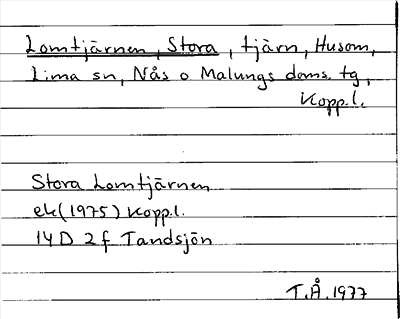 Lomtjärnen, Stora, tjärn, Husom,
Lima sn, Nås o Malungs doms. tg,
Kopp.l.
Stora Lomtjärnen
ek(1975) Kopp.l.
14D 2f Tandsjön
T.Å.1977